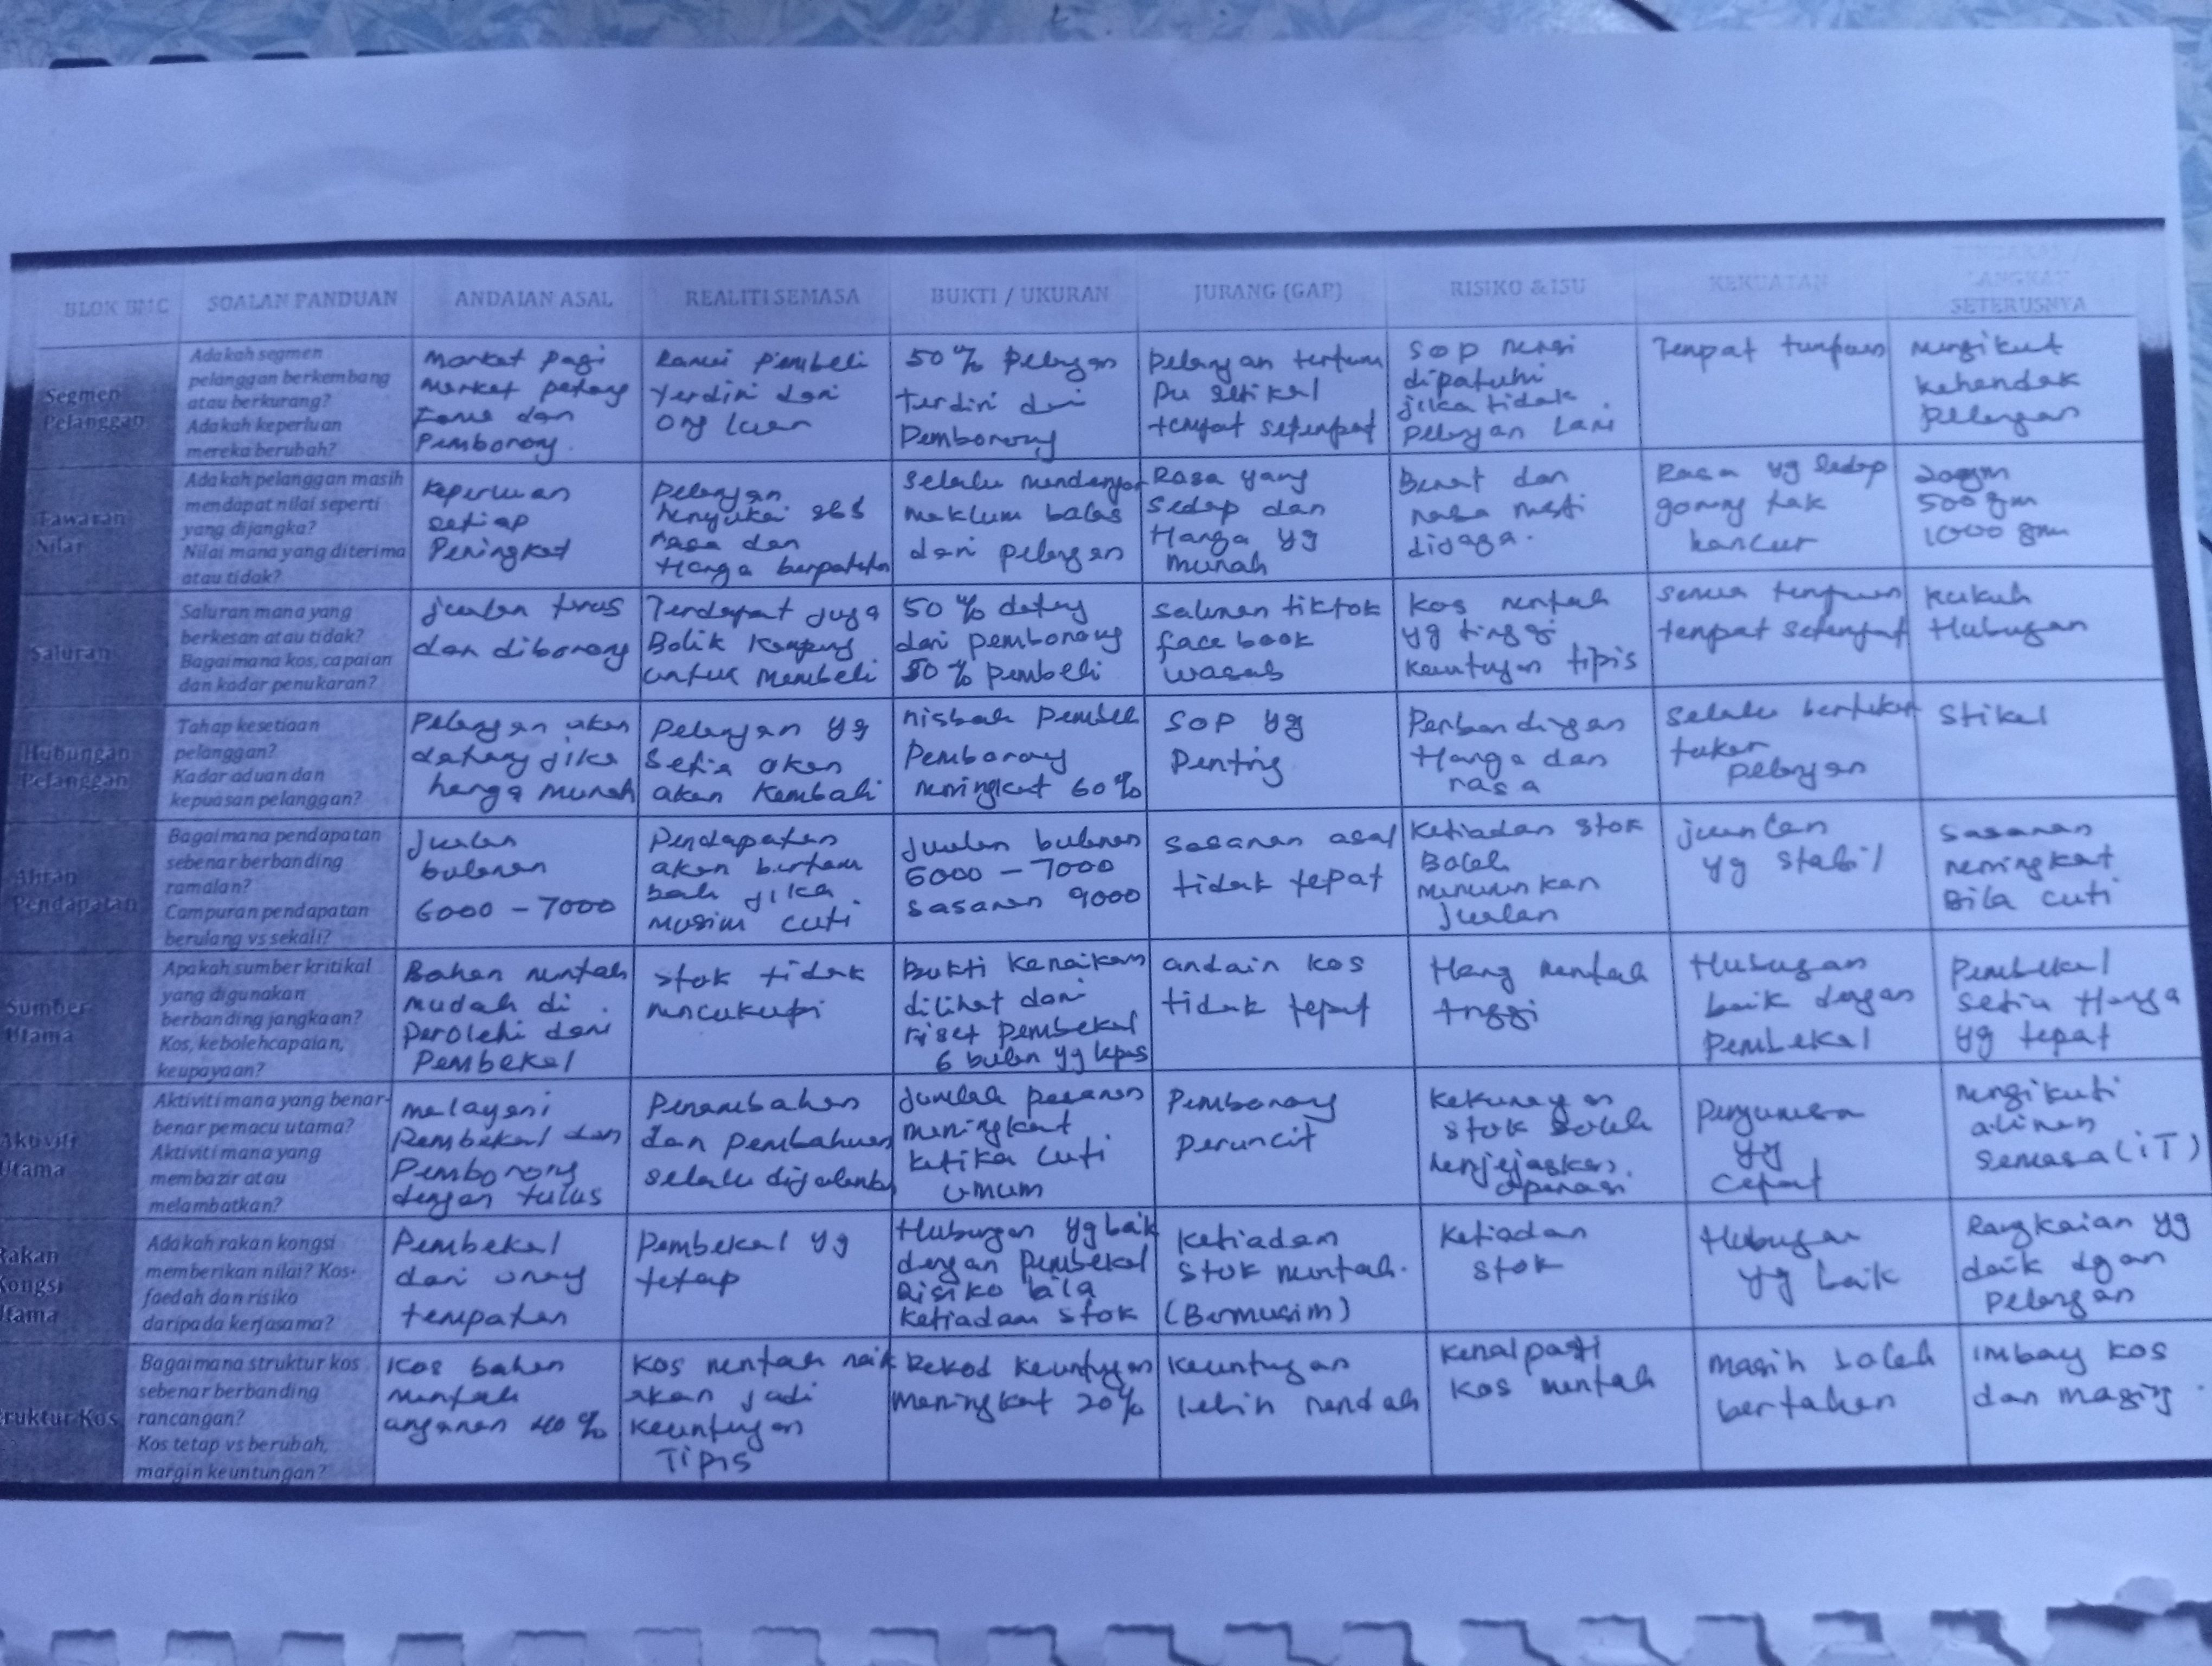 BLOK BMC
SOALAN PANDUAN
ANDAIAN ASAL
REALITI SEMASA
BUKTI / UKURAN
JURANG (GAP)
RISIKO & ISU
KEKUATAN
LANGKAH
SETERUSNYA
Segmen
Pelanggan
Adakah segmen
pelanggan berkembang
atau berkurang?
Adakah keperluan
mereka berubah?
Market pagi
Market petang
dan
Pemborong.
Ramai Pembeli
terdiri dari
org luar
50% pelangan
terdiri dri
Pemborong
pelangan tertum
pu
tempat setempat
SOP mesti
dipatuhi
jika tidak
pelangan Lari
Tempat tumpuan
Mengikut
kehendak
pelangan
Tawaran
Nilai
Adakah pelanggan masih
mendapat nilai seperti
yang dijangka?
Nilai mana yang diterima
atau tidak?
Keperluan
setiap
Peringkat
Pelangan
menyukai sbb
rasa dan
Harga berpatutan
Selalu mendengar
maklum balas
dari pelangan
Rasa yang
Sedap dan
Harga yg
murah
Berat dan
rasa mesti
dijaga.
Rasa yg Sedap
goreng tak
hancur
200gm
500 gm
1000 gm
Saluran
Saluran mana yang
berkesan atau tidak?
Bagaimana kos, capaian
dan kadar penukaran?
Jualan terus
dan diborong
Terdapat juga
Balik Kampung
untuk membeli
50% datang
dari pemborong
50% pembeli
Saluran tiktok
face book
wasab
Kos mentah
yg tinggi
keuntugan tipis
semua tempuan
tempat setempat
kukuh
Hubugan
Hubungan
Pelanggan
Tahap kesetiaan
pelanggan?
Kadar aduan dan
kepuasan pelanggan?
Pelangan akan
datang jika
harga murah
Pelangan yg
Setia akan
akan kembali
nisbah Pembeli
Pemborong
meningkat 60%
SOP yg
Penting
Perbandigan
Harga dan
rasa
Selalu bertukar
tukar
pelangan
Stikel
Aliran
Pendapatan
Bagaimana pendapatan
sebenar berbanding
ramalan?
Campuran pendapatan
berulang vs sekali?
Jualan
bulanan
6000 - 7000
Pendapatan
akan bertam
bah jika
musim cuti
Jualan bulanan
6000 - 7000
Sasaran 9000
Sasaran asal
tidak tepat
Ketiadan stok
Boleh
menurunkan
Jualan
jualan
yg stabil
Sasaran
meningkat
Bila cuti
Sumber
Utama
Apakah sumber kritikal
yang digunakan
berbanding jangkaan?
Kos, kebolehcapaian,
keupayaan?
Bahan mentah
mudah di
Perolehi dari
Pembekal
Stok tidak
mencukupi
Bukti kenaikan
dilihat dari
riset pembekal
6 bulan yg lepas
andain kos
tidak tepat
Harg mentah
tnggi
Hubugan
baik dengan
Pembekal
Pembekal
setia Harga
yg tepat
Aktiviti
Utama
Aktiviti mana yang benar-
benar pemacu utama?
Aktiviti mana yang
membazir atau
melambatkan?
Melayani
Pembekal dan
Pemborong
dengan tulus
Penambahan
dan pembaharuan
selalu dijalankan
Jumlah pesanan
meningkat
ketika cuti
umum
Pemborong
peruncit
Kekurangan
stok boleh
menjejaskan
operasi
Pengurusan
yg
Cepat
Mengikuti
aliran
semasa (iT)
Rakan
Kongsi
Utama
Adakah rakan kongsi
memberikan nilai? Kos-
faedah dan risiko
daripada kerjasama?
Pembekal
dari orang
tempatan
Pembekal yg
tetap
Hubungan yg baik
dengan pembekal
Risiko bila
Ketiadaan stok
Ketiadan
Stok mentah.
(Bermusim)
Ketiadan
stok
Hubugan
yg baik
Rangkaian yg
baik dgan
Pelangan
Struktur Kos
Bagaimana struktur kos
sebenar berbanding
rancangan?
Kos tetap vs berubah,
margin keuntungan?
Kos bahan
mentah
angaran 40%
Kos mentah naik
akan jadi
Keuntugan
Tipis
Rekod keuntugan
meningkat 20%
Keuntugan
lebih rendah
Kenalpasti
kos mentah
Masih boleh
bertahan
imbang kos
dan maging.